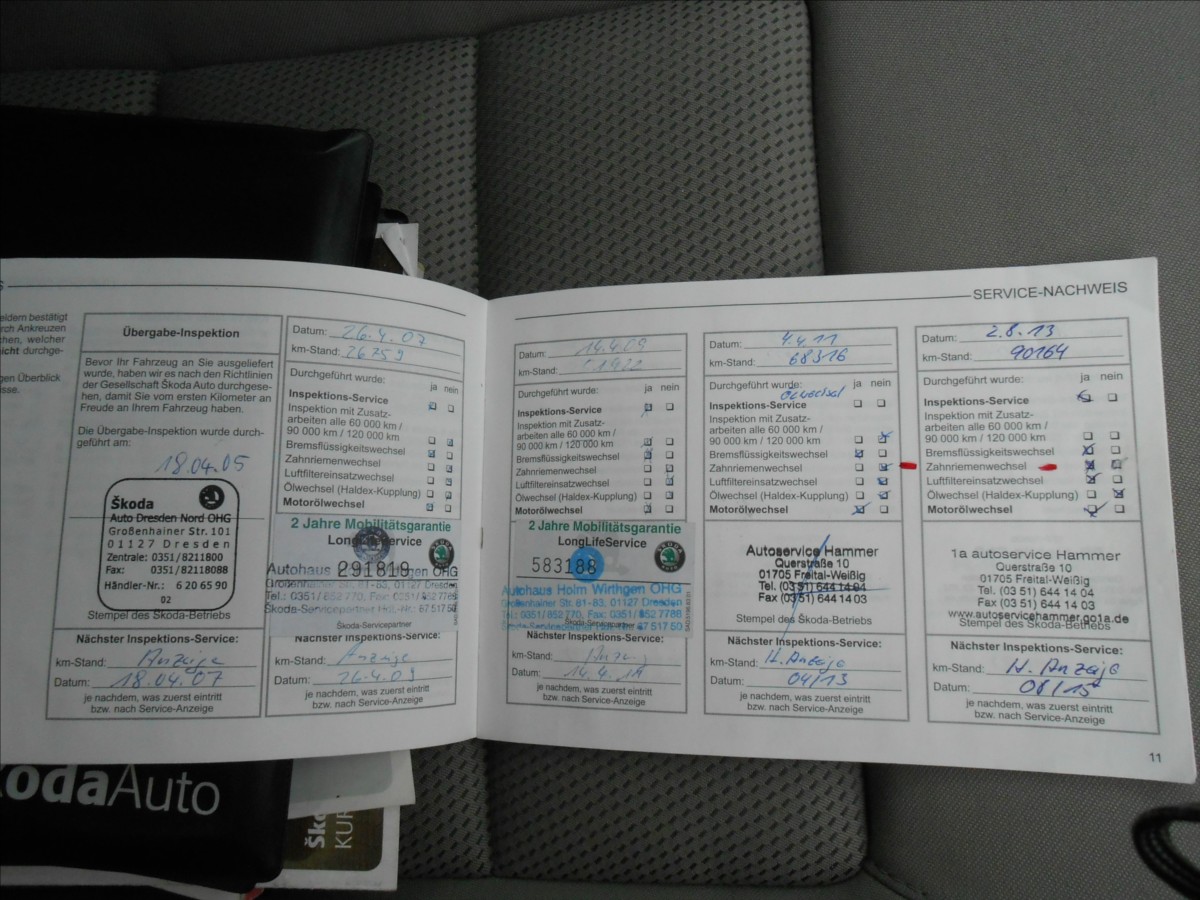 SERVICE-NACHWEIS
eldern bestätigt
rch Ankreuzen
chen, welcher
nicht durchge-
gen Überblick
sse.
Übergabe-Inspektion
Bevor Ihr Fahrzeug an Sie ausgeliefert
wurde, haben wir es nach den Richtlinien
der Gesellschaft Škoda Auto durchgese-
hen, damit Sie vom ersten Kilometer an
Freude an Ihrem Fahrzeug haben.
Die Übergabe-Inspektion wurde durch-
geführt am:
18.04.05
Škoda
Auto Dresden Nord OHG
Großenhainer Str. 101
01127 Dresden
Zentrale: 0351/8211800
Fax: 0351/82118088
Händler-Nr.: 6 206 5 90
02
Stempel des Škoda-Betriebs
Nächster Inspektions-Service:
km-Stand: Anzeige
Datum: 18.04.07
je nachdem, was zuerst eintritt
bzw. nach Service-Anzeige
Datum: 26.4.07
km-Stand: 26759
Durchgeführt wurde:
ja nein
Inspektions-Service
Inspektion mit Zusatz-
arbeiten alle 60 000 km /
90 000 km / 120 000 km
Bremsflüssigkeitswechsel
Zahnriemenwechsel
Luftfiltereinsatzwechsel
Ölwechsel (Haldex-Kupplung)
Motorölwechsel
2 Jahre Mobilitätsgarantie
LongLifeService
291819
Autohaus Holm Wirthgen OHG
Großenhainer Str. 81-83, 01127 Dresden
Tel.: 0351/ 852 770, Fax: 0351/ 852 7788
Škoda-Servicepartner Hdl.-Nr.: 67 517 60
Škoda-Servicepartner
Nächster Inspektions-Service:
km-Stand: Anzeige
Datum: 26.4.09
je nachdem, was zuerst eintritt
bzw. nach Service-Anzeige
Datum: 14.4.09
km-Stand:
Durchgeführt wurde:
ja nein
Inspektions-Service
Inspektion mit Zusatz-
arbeiten alle 60 000 km /
90 000 km / 120 000 km
Bremsflüssigkeitswechsel
Zahnriemenwechsel
Luftfiltereinsatzwechsel
Ölwechsel (Haldex-Kupplung)
Motorölwechsel
2 Jahre Mobilitätsgarantie
LongLifeService
583188
Autohaus Holm Wirthgen OHG
Großenhainer Str. 81-83, 01127 Dresden
Tel.: 0351/ 852 770, Fax: 0351/ 852 7788
Škoda-Servicepartner
Nächster Inspektions-Service:
km-Stand:
Datum: 14.4.11
je nachdem, was zuerst eintritt
bzw. nach Service-Anzeige
Datum: 4.4.11
km-Stand: 68316
Durchgeführt wurde:
ja nein
Ölwechsel
Inspektions-Service
Inspektion mit Zusatz-
arbeiten alle 60 000 km /
90 000 km / 120 000 km
Bremsflüssigkeitswechsel
Zahnriemenwechsel
Luftfiltereinsatzwechsel
Ölwechsel (Haldex-Kupplung)
Motorölwechsel
Autoservice Hammer
Querstraße 10
01705 Freital-Weißig
Tel. (03 51) 644 14 04
Fax (03 51) 644 14 03
Stempel des Škoda-Betriebs
Nächster Inspektions-Service:
km-Stand: N. Anzeige
Datum: 04/13
je nachdem, was zuerst eintritt
bzw. nach Service-Anzeige
Datum: 2.8.13
km-Stand: 90164
Durchgeführt wurde:
ja nein
Inspektions-Service
Inspektion mit Zusatz-
arbeiten alle 60 000 km /
90 000 km / 120 000 km
Bremsflüssigkeitswechsel
Zahnriemenwechsel
Luftfiltereinsatzwechsel
Ölwechsel (Haldex-Kupplung)
Motorölwechsel
1a autoservice Hammer
Querstraße 10
01705 Freital-Weißig
Tel. (03 51) 644 14 04
Fax (03 51) 644 14 03
www.autoservicehammer.go1a.de
Stempel des Škoda-Betriebs
Nächster Inspektions-Service:
km-Stand: N. Anzeige
Datum: 08/15
je nachdem, was zuerst eintritt
bzw. nach Service-Anzeige
11
kodaAuto
Ško
KUR